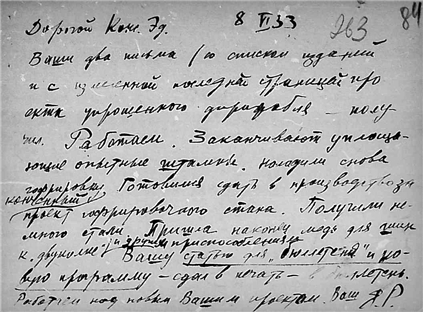 Дорогой Конс. Эд. 8 VI 33 263 84
Ваши два письма (со списком изданий
и с измененной последней страницей про
екта упрощенного дирижабля – полу
чил. Работаем. Заканчивают уплоща-
ющие опытные штампы. Наладили снова
гофрировку. Готовимся сдать в производство
проект гофрировочного станка. Получили не-
много стали. Пришла наконец медь для шин
к и другие приспособления
Вашу статью для "бюллетеня" и но-
вую программу – сдал в печать – в бюллетень.
Работаем над новым Вашим проектом. Ваш Я. Р.